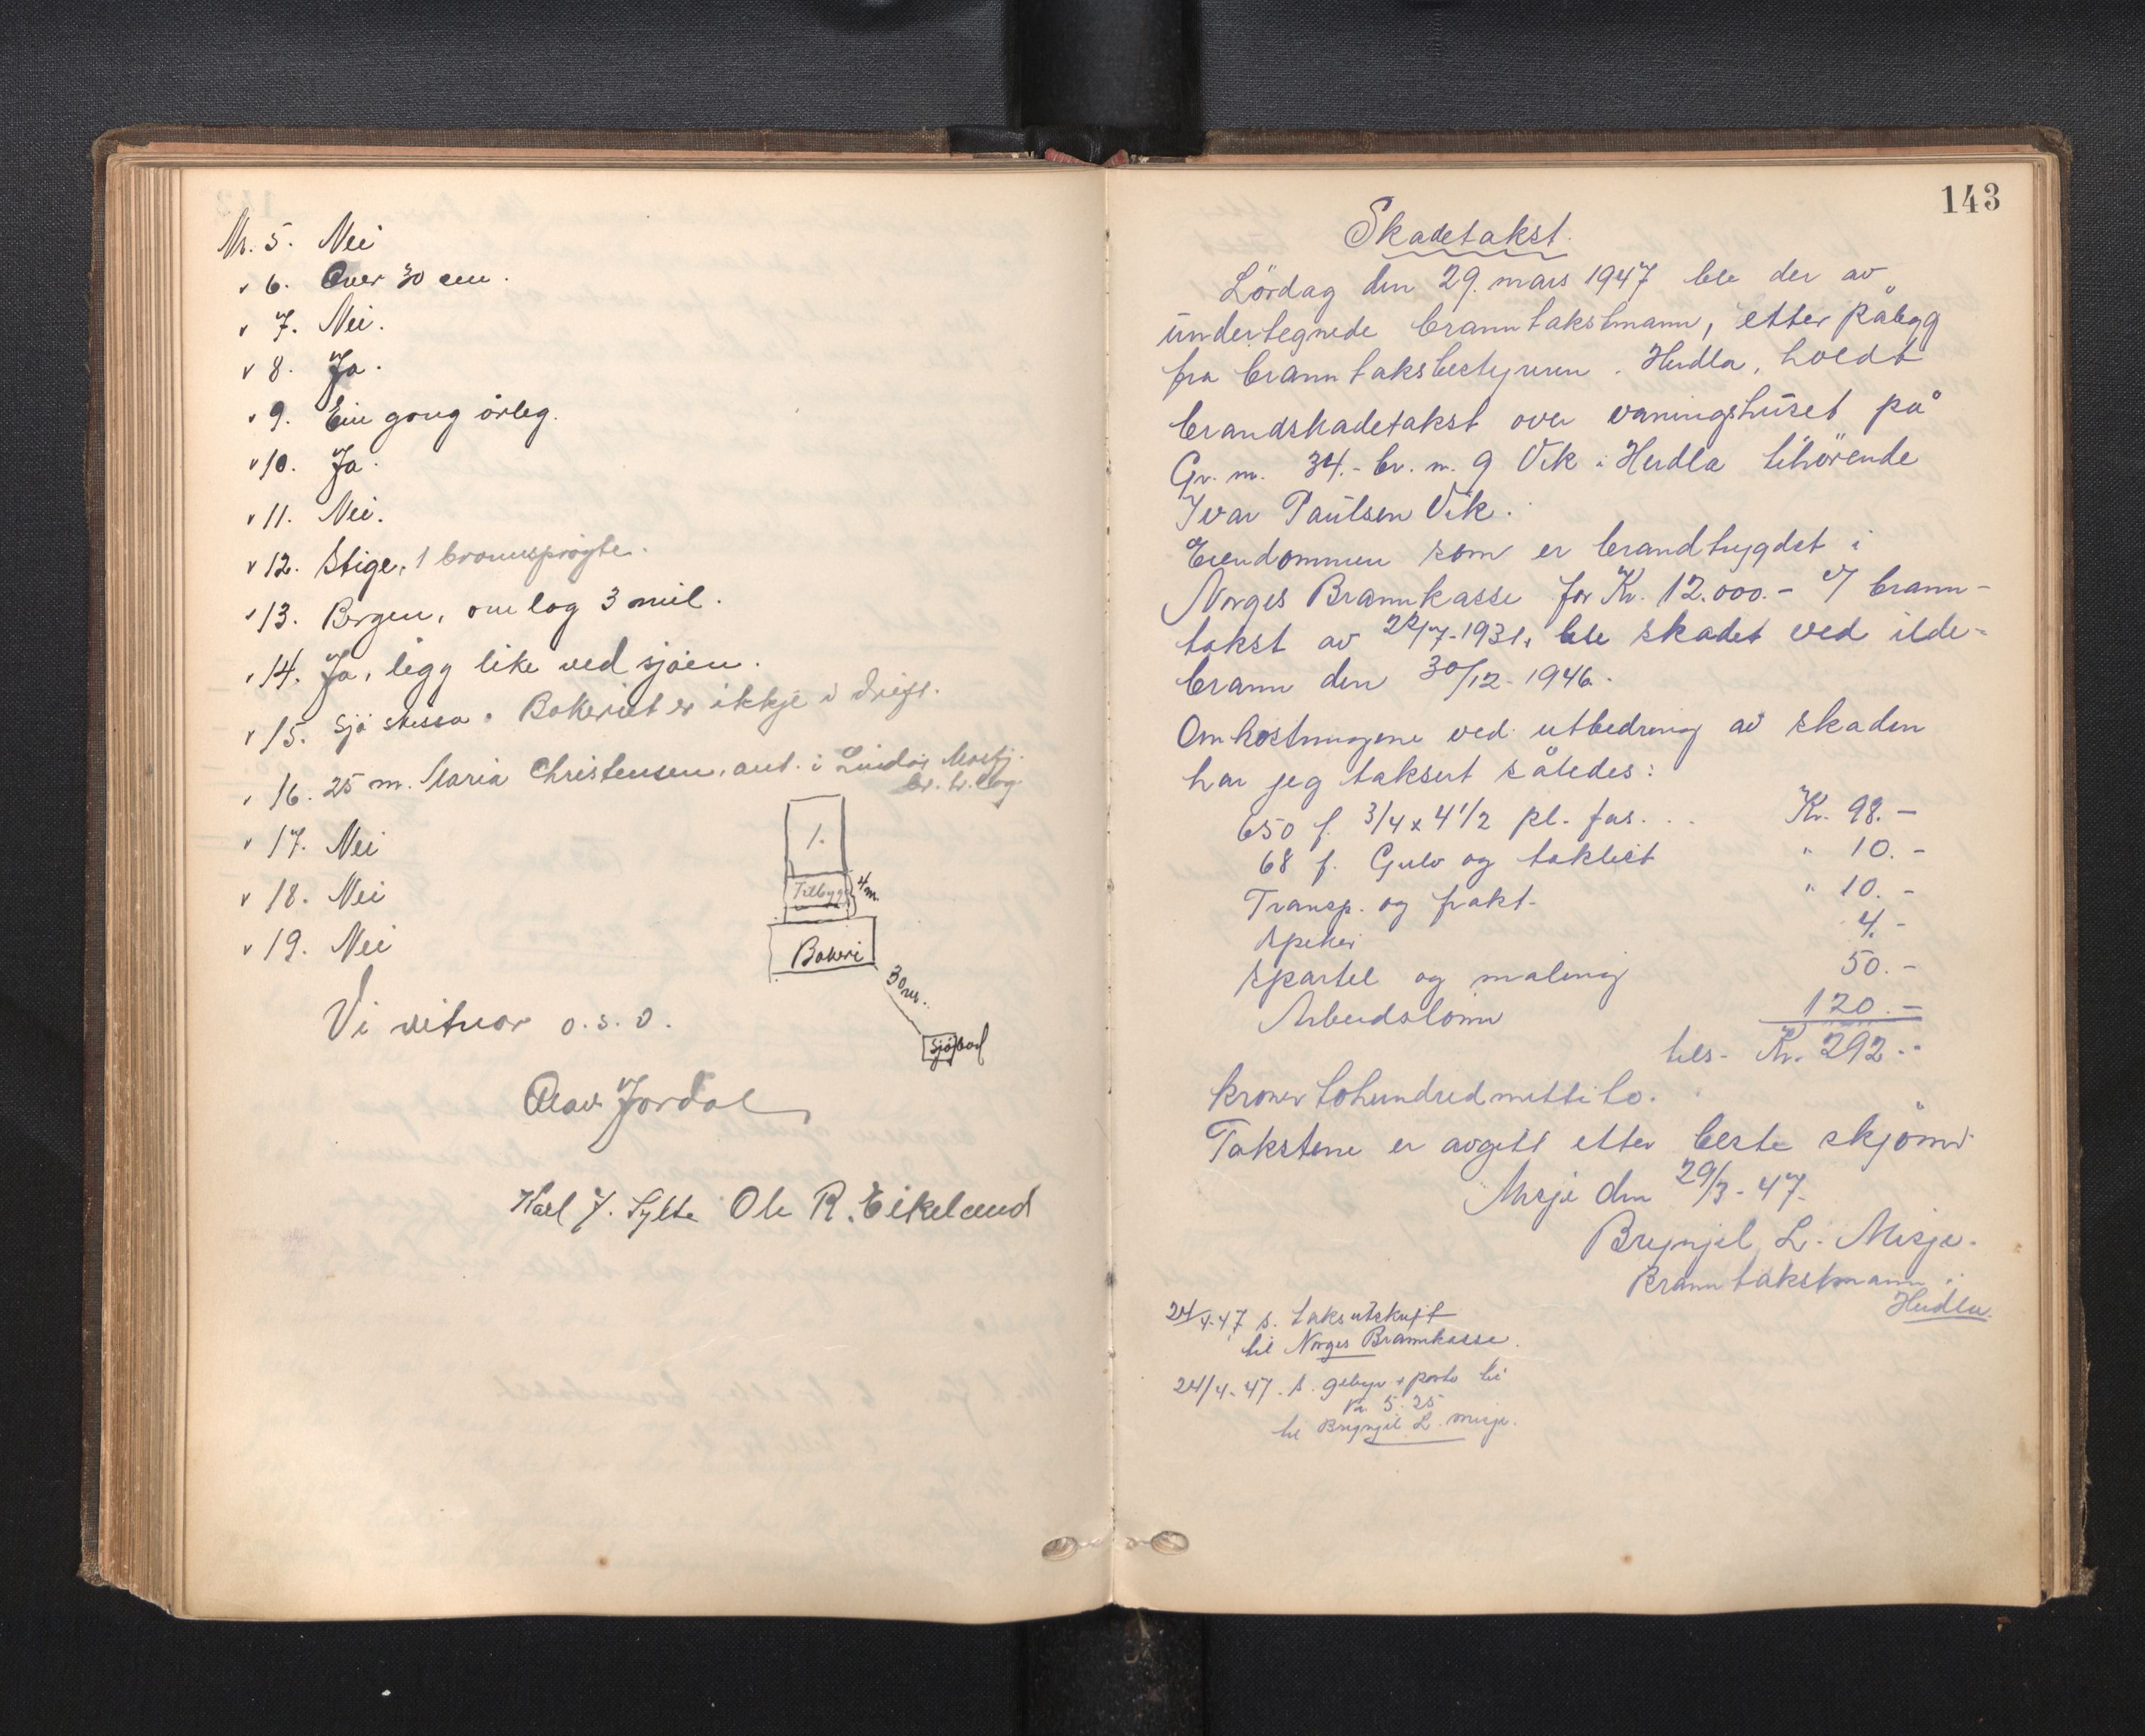 Nr. 5. Nei
" 6. Over 30 cm.
" 7. Nei.
" 8. Ja.
" 9. Ein gong årleg.
" 10. Ja.
" 11. Nei.
" 12. Stige, 1 brannsprøyte.
" 13. Bergen, om lag 3 mil.
" 14. Ja, ligg like ved sjøen.
" 15. Sjå skissa. Bakeriet er ikkje i drift.
" 16. 25 m. Maria Christensen, ant. i Lindås Mostj.
br. tr. lag
" 17. Nei
" 18. Nei
" 19. Nei
1.
Tilbygg
4 m.
Bakeri
30 m.
Sjøbod
Vi vitnar o.s.v.
Olav Jordal
Karl J. Sylta Ole R. Eikeland
143
Skadetakst.
Lördag den 29. mars 1947 ble der av
undertegnede branntakstmann, etter pålegg
fra branntakstbestyreren i Herdla, holdt
brandskadetakst over våningshuset på
Gr. nr. 34.- br. nr. 9 Vik i Herdla tilhörende
Ivar Paulsen Vik.
Eiendommen som er brandtrygdet i
Norges Brannkasse for Kr. 12.000.- e/ brann-
takst av 22/7-1931, ble skadet ved ilde-
brann den 30/12-1946.
Omkostningene ved utbedring av skaden
har jeg taksert således:
650 f. 3/4 x 4 1/2 pl. fas. . . Kr. 98.-
68 f. Gulv og taklist " 10.-
Transp. og frakt- " 10.-
Spiker 4.-
Spartel og maling 50.-
Arbeidslönn 120.-
tils- Kr. 292.-
kroner tohundrednittito.
Takstene er avgitt etter beste skjönn
Misje den 29/3-47.
Brynjel L. Misje.
Branntakstmann i
Herdla
24/4-47 s. takstutskrift
til Norges Brannkasse.
24/4-47. s. gebyr + porto til
Kr 5.25
til Brynjel L. Misje.